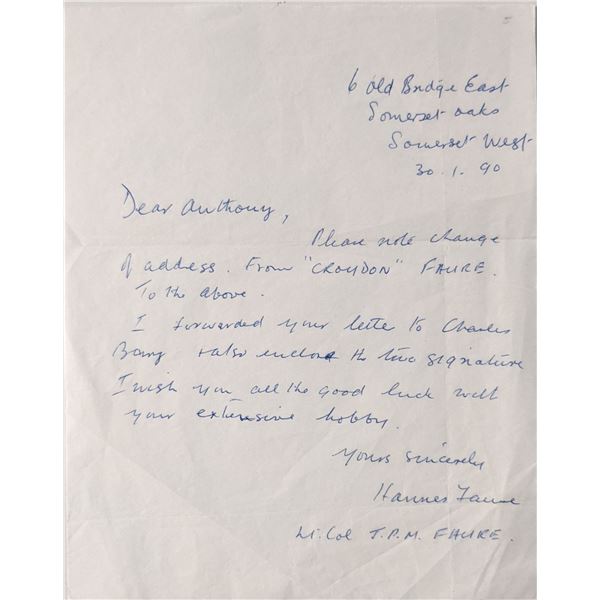 6 Old Bridge East
Somerset Oaks
Somerset West
30.1.90
Dear Anthony,
Please note change
of address. From "CROYDON" FAURE.
To the above.
I forwarded your lette to Charles
Barry + also enclose the two signature
I wish you all the good luck with
your extensive hobby.
Yours sincerely
Hannes Faure
Lt. Col J.P.M. FAURE.